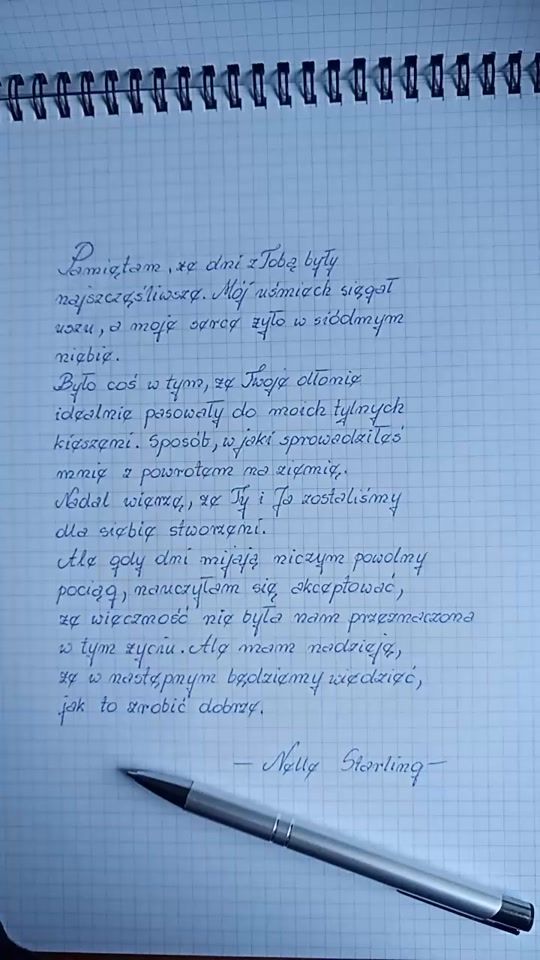 Pamiętam, że dni z Tobą były
najszczęśliwsze. Mój uśmiech sięgał
uszu, a moje serce żyło w siódmym
niebie.
Było coś w tym, że Twoje dłonie
idealnie pasowały do moich tylnych
kieszeni. Sposób, w jaki sprowadziłeś
mnie z powrotem na ziemię.
Nadal wierzę, że Ty i Ja zostaliśmy
dla siebie stworzeni.
Ale gdy dni mijają niczym powolny
pociąg, nauczyłam się akceptować,
że wieczność nie była nam przeznaczona
w tym życiu. Ale mam nadzieję,
że w następnym będziemy wiedzieć,
jak to zrobić dobrze.
- Nelle Starling -